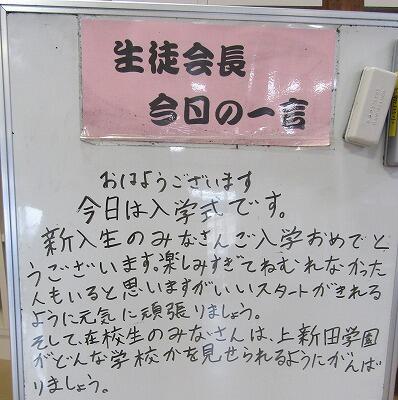 生徒会長
今日の一言
おはようございます
今日は入学式です。
新入生のみなさんご入学おめでと
うございます。楽しみすぎてねむれなかった
人もいると思いますがいいスタートがきれる
ように元気に頑張りましょう。
そして、在校生のみなさんは、上新田学園
がどんな学校かを見せられるようにがんば
りましょう。